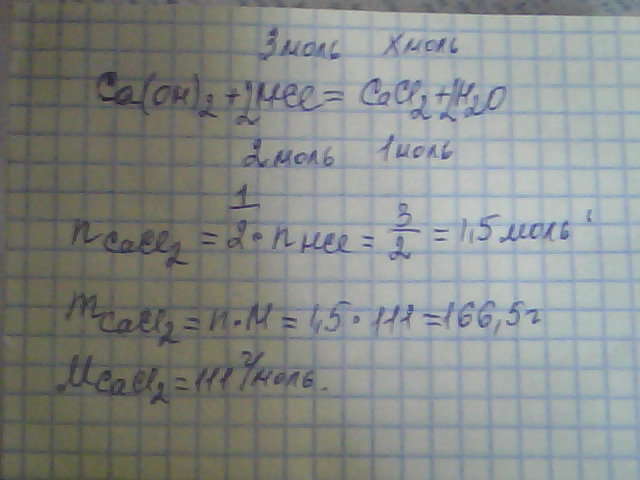 3 моль х моль
Ca(OH)₂ + 2HCl = CaCl₂ + 2H₂O
2 моль 1 моль
n CaCl₂ = 1/2 · n HCl = 3/2 = 1,5 моль
m CaCl₂ = n · M = 1,5 · 111 = 166,5 г
M CaCl₂ = 111 г/моль.